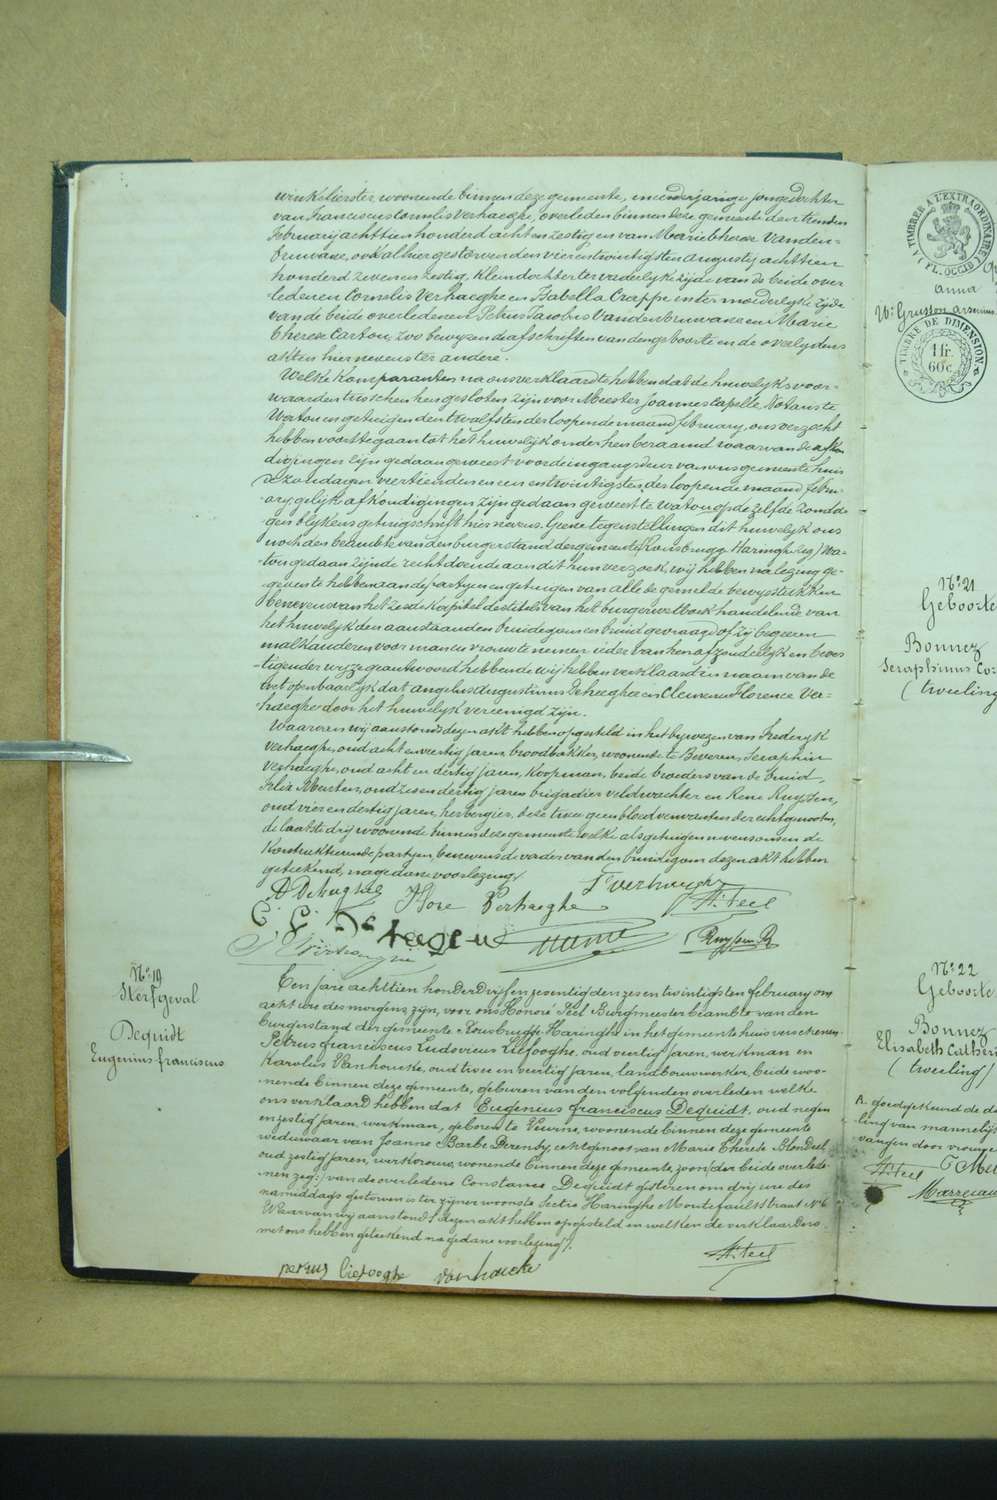 winkelierster, woonende binnen deze gemeente, meerderjarige jongedochter
van Franciscus Cornelis Verhaeghe, overleden binnen deze gemeente den tienden
February achttien honderd acht en zestig en van Marie Therese Vanden=
bruwane, ook alhier gestorven den vier en twintigsten augusty achttien
honderd zeven en zestig. Kleindochter ter vaderlyke zyde van de beide over
ledenen Cornelis Verhaeghe en Isabella Crappe en ter moederlyke zyde
van de beide overledenen Petrus Jacobus Vandenbruwane en Marie
Therese Carton, zoo bewyzen de afschriften van den geboorte en de overlydens
akten hier nevens ter andere.
Welke Komparanten na ons verklaard te hebben dat de huwelyks voor=
waarden tusschen hen gesloten zyn voor Meester Joannes Capelle, Notaris te
Watou en getuigen den twaalfsten der loopende maand february, ons verzocht
hebben voort te gaan tot het huwelyk onder hen beraamd waarvan de afkon
digingen zyn gedaan geweest voor de ingangdeur van ons gemeente huis
de zondagen veertienden en een en twintigsten der loopende maand febru=
ary gelyke afkondigingen zyn gedaan geweest te Watou op de zelfde zonda
gen blykens getuigschrift hier nevens. Geene tegenstellingen dit huwelyk ons
noch den beambte van den burgerstand der gemeente (Rousbrugge Haringhe zeg) Wa=
tou gedaan zynde recht doende aan dit hun verzoek, wy hebben na lezing ge=
geven te hebben aan de partyen en getuigen van alle de gemelde bewysstukken
benevens van het zesde Kapitel des titels van het burgerwetboek handelende van
het huwelyk den aanstaanden bruidegom en bruid gevraagd of zy begeeren
malkanderen voor man en vrouw te nemen ieder van hen afzonderlyk en beves
tigender wyze geantwoord hebbende wy hebben verklaard in naam van de
wet openbaarlyk dat Angelus Augustinus Dehaeghe en Clemence Florence Ver=
haeghe door het huwelyk vereenigd zyn.
Waarvan wy aanstonds dezen akt hebben opgesteld in het bywezen van Frederyk
Verhaeghe, oud acht en veertig jaren, broodbakker, woonende te Beveren, Seraphin
Verhaeghe, oud acht en dertig jaren, Koopman, beide broeders van de bruid,
Felix Mersten, oud zes en dertig jaren brigadier veldwachter en Rene Ruyssen,
oud vier en dertig jaren, herbergier, deze twee geen bloedverwanten der echtgenooten,
de laatste dry woonende binnen deze gemeente welke als getuigen nevens ons en de
Kontrakteerende partyen, benevens de vader van den bruidegom dezen akt hebben
geteekend, na gedane voorlezing /.
Flore Verhaeghe F Verhaeghe
H. Teel
Ruyssen R
No 19
Sterfgeval
Dequidt
Eugenius franciscus
Een jare achttien honderd vyf en zeventig den zes en twintigsten february om
acht ure des morgens zyn, voor ons Honoré Teel Burgmeester beambte van den
burgerstand der gemeente Rousbrugge Haringhe in het gemeente huis verschenen
Petrus franciscus Ludovicus Liefooghe, oud veertig jaren, werkman en
Karolus Vanhoucke, oud twee en veertig jaren, landbouwwerker, beide woo=
nende binnen deze gemeente, geburen van den volgenden overleden welke
ons verklaard hebben dat Eugenius franciscus Dequidt, oud negen
en zestig jaren, werkman, geboren te Veurne, woonende binnen deze gemeente
weduwaar van Joanne Barbe Derenty, echtgenoot van Marie Therese Blondeel,
oud zestig jaren, werkvrouw, wonende binnen deze gemeente, zoon (der beide overlede
nen zeg:) van de overledene Constance Dequidt gisteren om dry ure des
namiddags gestorven is ter zyner woonste Sectie Haringhe Montefaultstraat No 6
Waarvan wy aanstonds dezen akt hebben opgesteld en welken de verklaarders
met ons hebben geteekend na gedane voorlezing /.
H. Teel
petrus liefooghe vanhoucke
TIMBRER A L'EXTRAORDINAIRE
FL. OCCID
anna
Wt Grusson Arsenius
TIMBRE DE DIMENSION
1 fr.
60 c.
No 21
Geboorte
Bonnez
Seraphinus Co=
(tweeling
No 22
Geboorte
Bonnez
Elisabeth Cathari
(tweeling)
A. goedgekeurd de d
ling van mannelyk
vangen door vrouwe
H. Teel